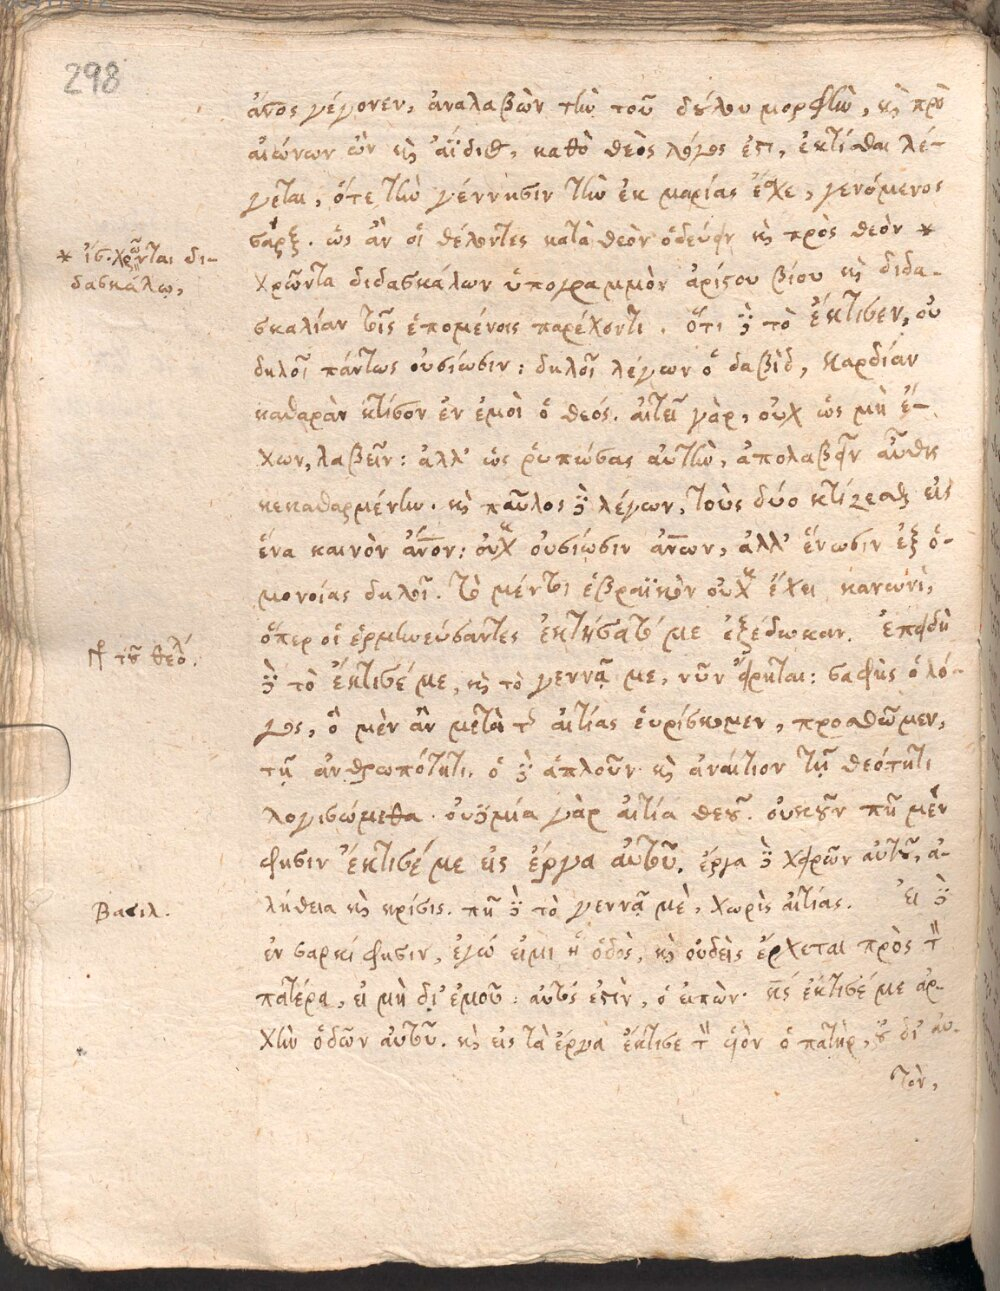 298
ἄνος γέγονεν, ἀναλαβὼν τὴν τοῦ δούλου μορφὴν, κὶ πρὸ
αἰώνων ὢν κὶ ἀΐδιος, καθὸ θεὸς λόγος ἐστι, ἐκτίσθαι λέ-
γεται, ὅτε τὴν γέννησιν τὴν ἐκ μαρίας ἔσχε, γενόμενος
σὰρξ. ὡς ἂν οἱ θέλοντες κατὰ θεὸν ὁδεύειν κὶ πρὸς θεὸν *
* ἴσ. χρῶνται δι-
δασκάλῳ,
χρῶντα διδασκάλων ὑπογραμμὸν ἀρίστου βίου κὶ διδα-
σκαλίαν τοῖς ἑπομένοις παρέχοντι. ὅτι δὲ τὸ ἔκτισεν, οὐ
δηλοῖ πάντως οὐσίωσιν: δηλοῖ λέγων ὁ δαβὶδ, καρδίαν
καθαρὰν κτίσον ἐν ἐμοὶ ὁ θεός. αἰτεῖ γὰρ, οὐχ ὡς μὴ ἔ-
χων, λαβεῖν: ἀλλ' ὡς ῥυπώσας αὐτὴν, ἀπολαβεῖν αὖθις
κεκαθαρμένην. κὶ παῦλος δὲ λέγων, τοὺς δύο κτίζεσθαι εἰς
ἕνα καινὸν ἄνον: οὐχ οὐσίωσιν ἄνων, ἀλλ' ἕνωσιν ἐξ ὁ-
μονοίας δηλοῖ. τὸ μέντοι ἑβραϊκὸν οὐχ ἔχει κανωνὶ,
ὅπερ οἱ ἑρμηνεύσαντες ἐκτήσατό με ἐξέδωκαν. ἐπειδὴ
τοῦ θεολό.
δὲ τὸ ἔκτισέ με, κὶ τὸ γεννᾷ με, νῦν εἴρηται: σαφὴς ὁ λό-
γος, ὃ μὲν ἂν μετὰ τῆς αἰτίας εὑρίσκομεν, προσθῶμεν,
τῇ ἀνθρωπότητι. ὃ δὲ ἁπλοῦν κὶ ἀναίτιον τῇ θεότητι
λογισώμεθα. οὐδεμία γὰρ αἰτία θεοῦ. οὐκοῦν πῆ μὲν
φησιν ἔκτισέ με εἰς ἔργα αὐτοῦ. ἔργα δὲ χειρῶν αὐτοῦ, ἀ-
λήθεια κὶ κρίσις. πῆ δὲ τὸ γεννᾷ μὲ, χωρὶς αἰτίας. Εἰ δὲ
Βασιλ.
ἐν σαρκί φησιν, ἐγώ εἰμι ἡ ὁδὸς, κὶ οὐδεὶς ἔρχεται πρὸς τὸν
πατέρα, εἰ μὴ δι' ἐμοῦ: αὐτός ἐστιν, ὁ εἰπὼν. κς ἔκτισέ με ἀρ-
χὴν ὁδῶν αὐτοῦ. κὶ εἰς τὰ ἔργα ἔκτισε τὸν υἱὸν ὁ πατὴρ, οὐ δι' αὐ-
τὸν,